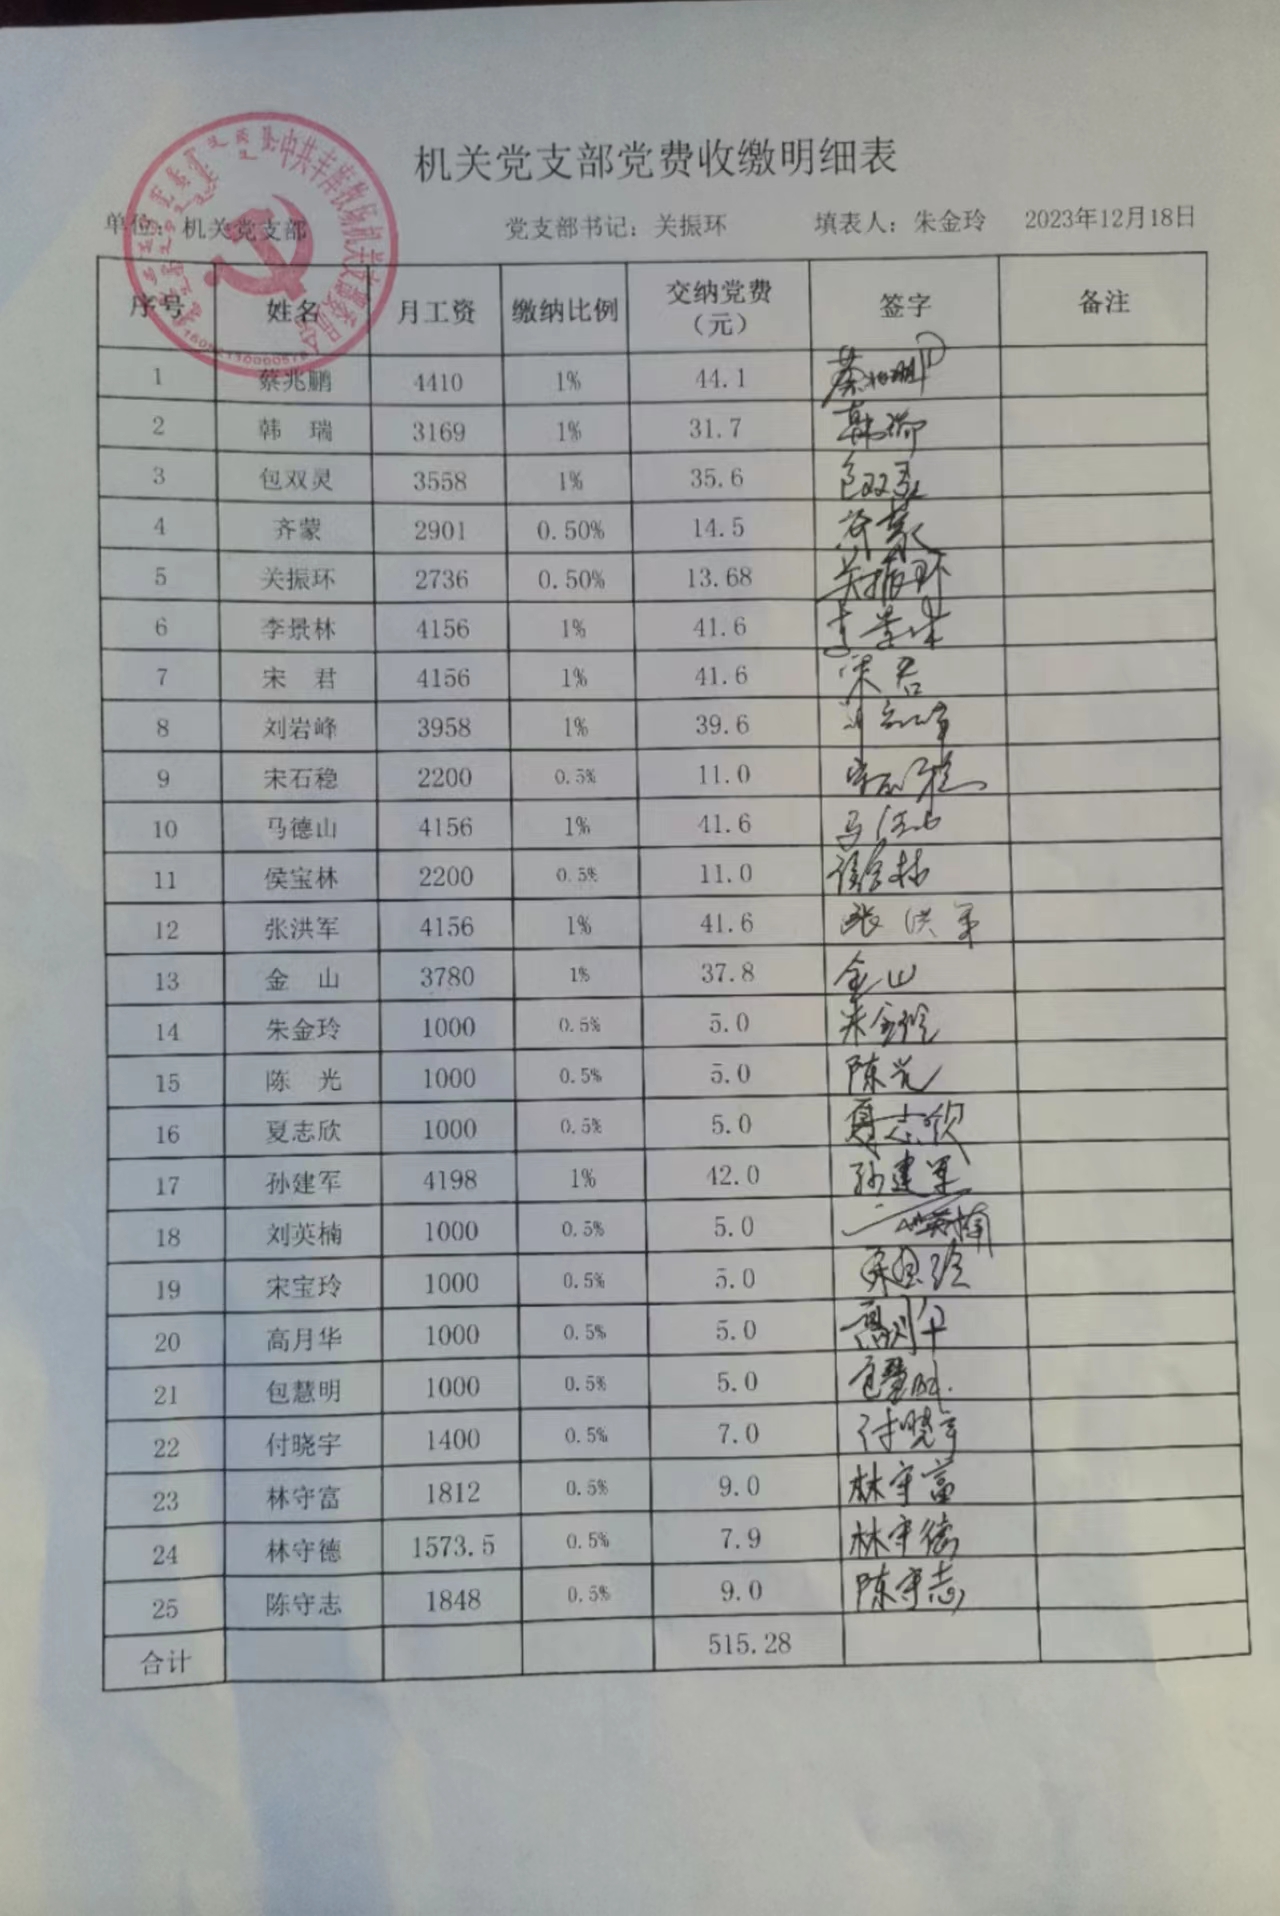 机关党支部党费收缴明细表
单位：机关党支部 党支部书记：关振环 填表人：朱金玲 2023年12月18日
序号 姓名 月工资 缴纳比例 交纳党费（元） 签字 备注
1 蔡兆鹏 4410 1% 44.1 蔡兆鹏
2 韩 瑞 3169 1% 31.7 韩瑞
3 包双灵 3558 1% 35.6 包双灵
4 齐蒙 2901 0.50% 14.5 齐蒙
5 关振环 2736 0.50% 13.68 关振环
6 李景林 4156 1% 41.6 李景林
7 宋 君 4156 1% 41.6 宋君
8 刘岩峰 3958 1% 39.6 刘岩峰
9 宋石稳 2200 0.5% 11.0 宋石稳
10 马德山 4156 1% 41.6 马德山
11 侯宝林 2200 0.5% 11.0 侯宝林
12 张洪军 4156 1% 41.6 张洪军
13 金 山 3780 1% 37.8 金山
14 朱金玲 1000 0.5% 5.0 朱金玲
15 陈 光 1000 0.5% 5.0 陈光
16 夏志欣 1000 0.5% 5.0 夏志欣
17 孙建军 4198 1% 42.0 孙建军
18 刘英楠 1000 0.5% 5.0 刘英楠
19 宋宝玲 1000 0.5% 5.0 宋宝玲
20 高月华 1000 0.5% 5.0 高月华
21 包慧明 1000 0.5% 5.0 包慧明
22 付晓宇 1400 0.5% 7.0 付晓宇
23 林守富 1812 0.5% 9.0 林守富
24 林守德 1573.5 0.5% 7.9 林守德
25 陈守志 1848 0.5% 9.0 陈守志
合计 515.28